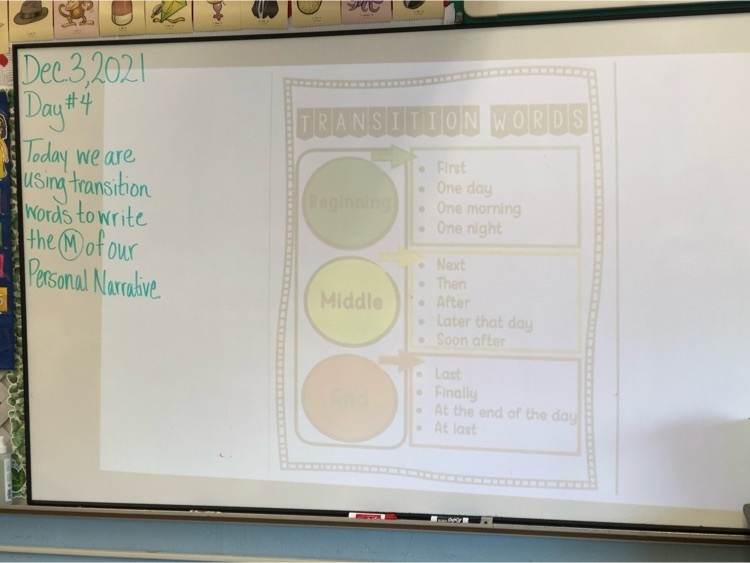 Dec. 3, 2021
Day #4
Today we are
using transition
words to write
the M of our
Personal Narrative.
TRANSITION WORDS
Beginning
First
One day
One morning
One night
Middle
Next
Then
After
Later that day
Soon after
End
Last
Finally
At the end of the day
At last